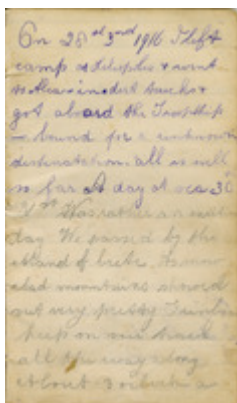 On 28 3rd 1916 I left
camp at Heliopolis & went
to Alexandria
got aboard the Troopship
bound for a unknown
destination. all is well
so far A day at sea 30
Was rather an
day We passed by the
island of Crete. Its snow
clad mountains showed
out very pretty
keep on our track
all the way along
About 3 oclock a